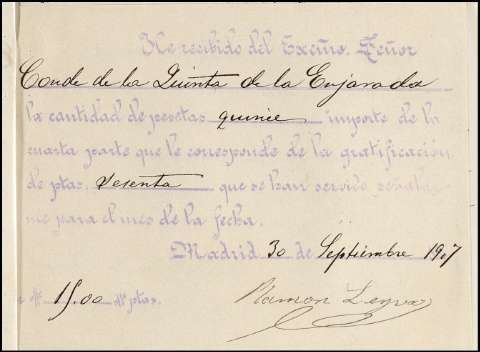 He recibido del Excmo. Señor
Conde de la Quinta de la Enjarada
la cantidad de pesetas quince importe de la
cuarta parte que le corresponde de la gratificación
de ptas. sesenta que se han servido señalar
me para el mes de la fecha.
Madrid 30 de Septiembre 1907
15.00 ptas.
Ramon Leyva